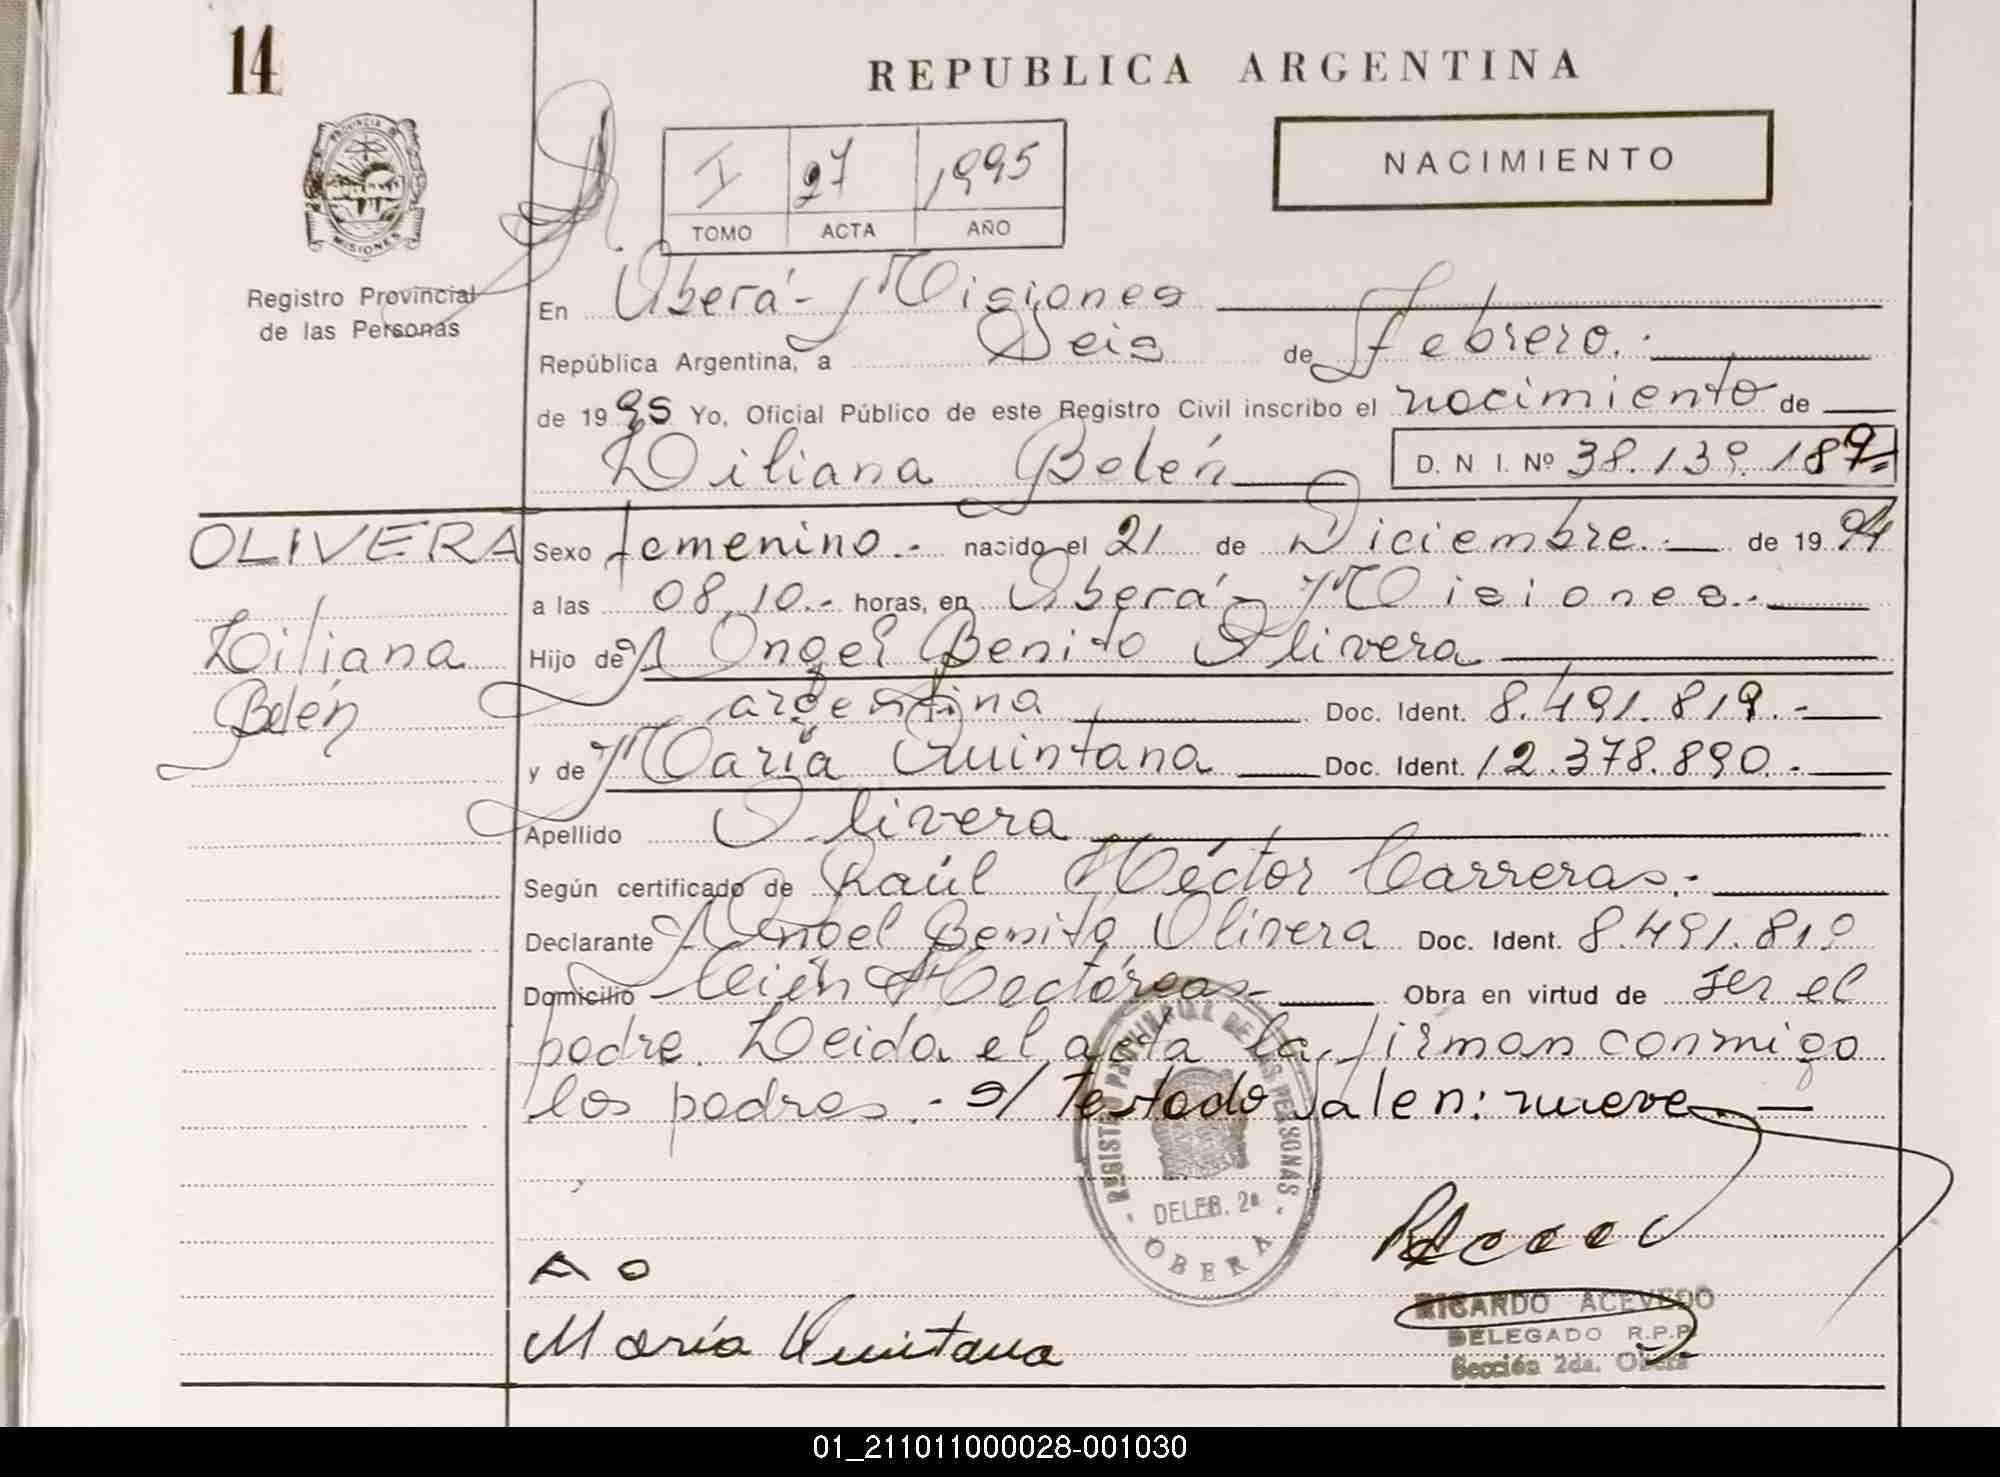 14
REPUBLICA ARGENTINA
PROVINCIA DE
MISIONES
I 27 1995
TOMO ACTA AÑO
NACIMIENTO
Registro Provincial
de las Personas
En Oberá - Misiones
República Argentina, a Seis de Febrero.-
de 1995 Yo, Oficial Público de este Registro Civil inscribo el nacimiento de
Liliana Belén D. N I. Nº 38.139.189=
OLIVERA
Liliana
Belén
Sexo femenino.- nacido el 21 de Diciembre.- de 1994
a las 08,10.- horas, en Oberá - Misiones.-
Hijo de Angel Benito Olivera
argentina Doc. Ident. 8.491.819.-
y de María Quintana Doc. Ident. 12.378.890.-
Apellido Olivera
Según certificado de Raúl Héctor Carreras.-
Declarante Angel Benito Olivera Doc. Ident. 8.491.819
Domicilio Cien Hectáreas- Obra en virtud de ser el
padre. Leida el acta la firman conmigo
los padres.- s/ Testado valen: nueve.-
REGISTRO PROVINCIAL DE LAS PERSONAS
DELEG. 2a
OBERA
A O
María Quintana
RICARDO ACEVEDO
DELEGADO R.P.P.
Sección 2da. Oberá
01_211011000028-001030